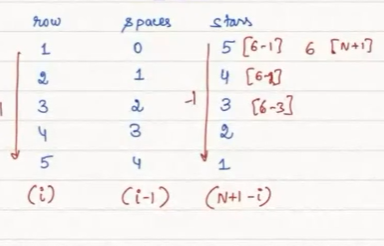 row spaces stars
1 0 5 [6-1] 6 [N+1]
2 1 4 [6-2]
3 2 -1 3 [6-3]
4 3 2
5 4 1
(i) (i-1) (N+1-i)